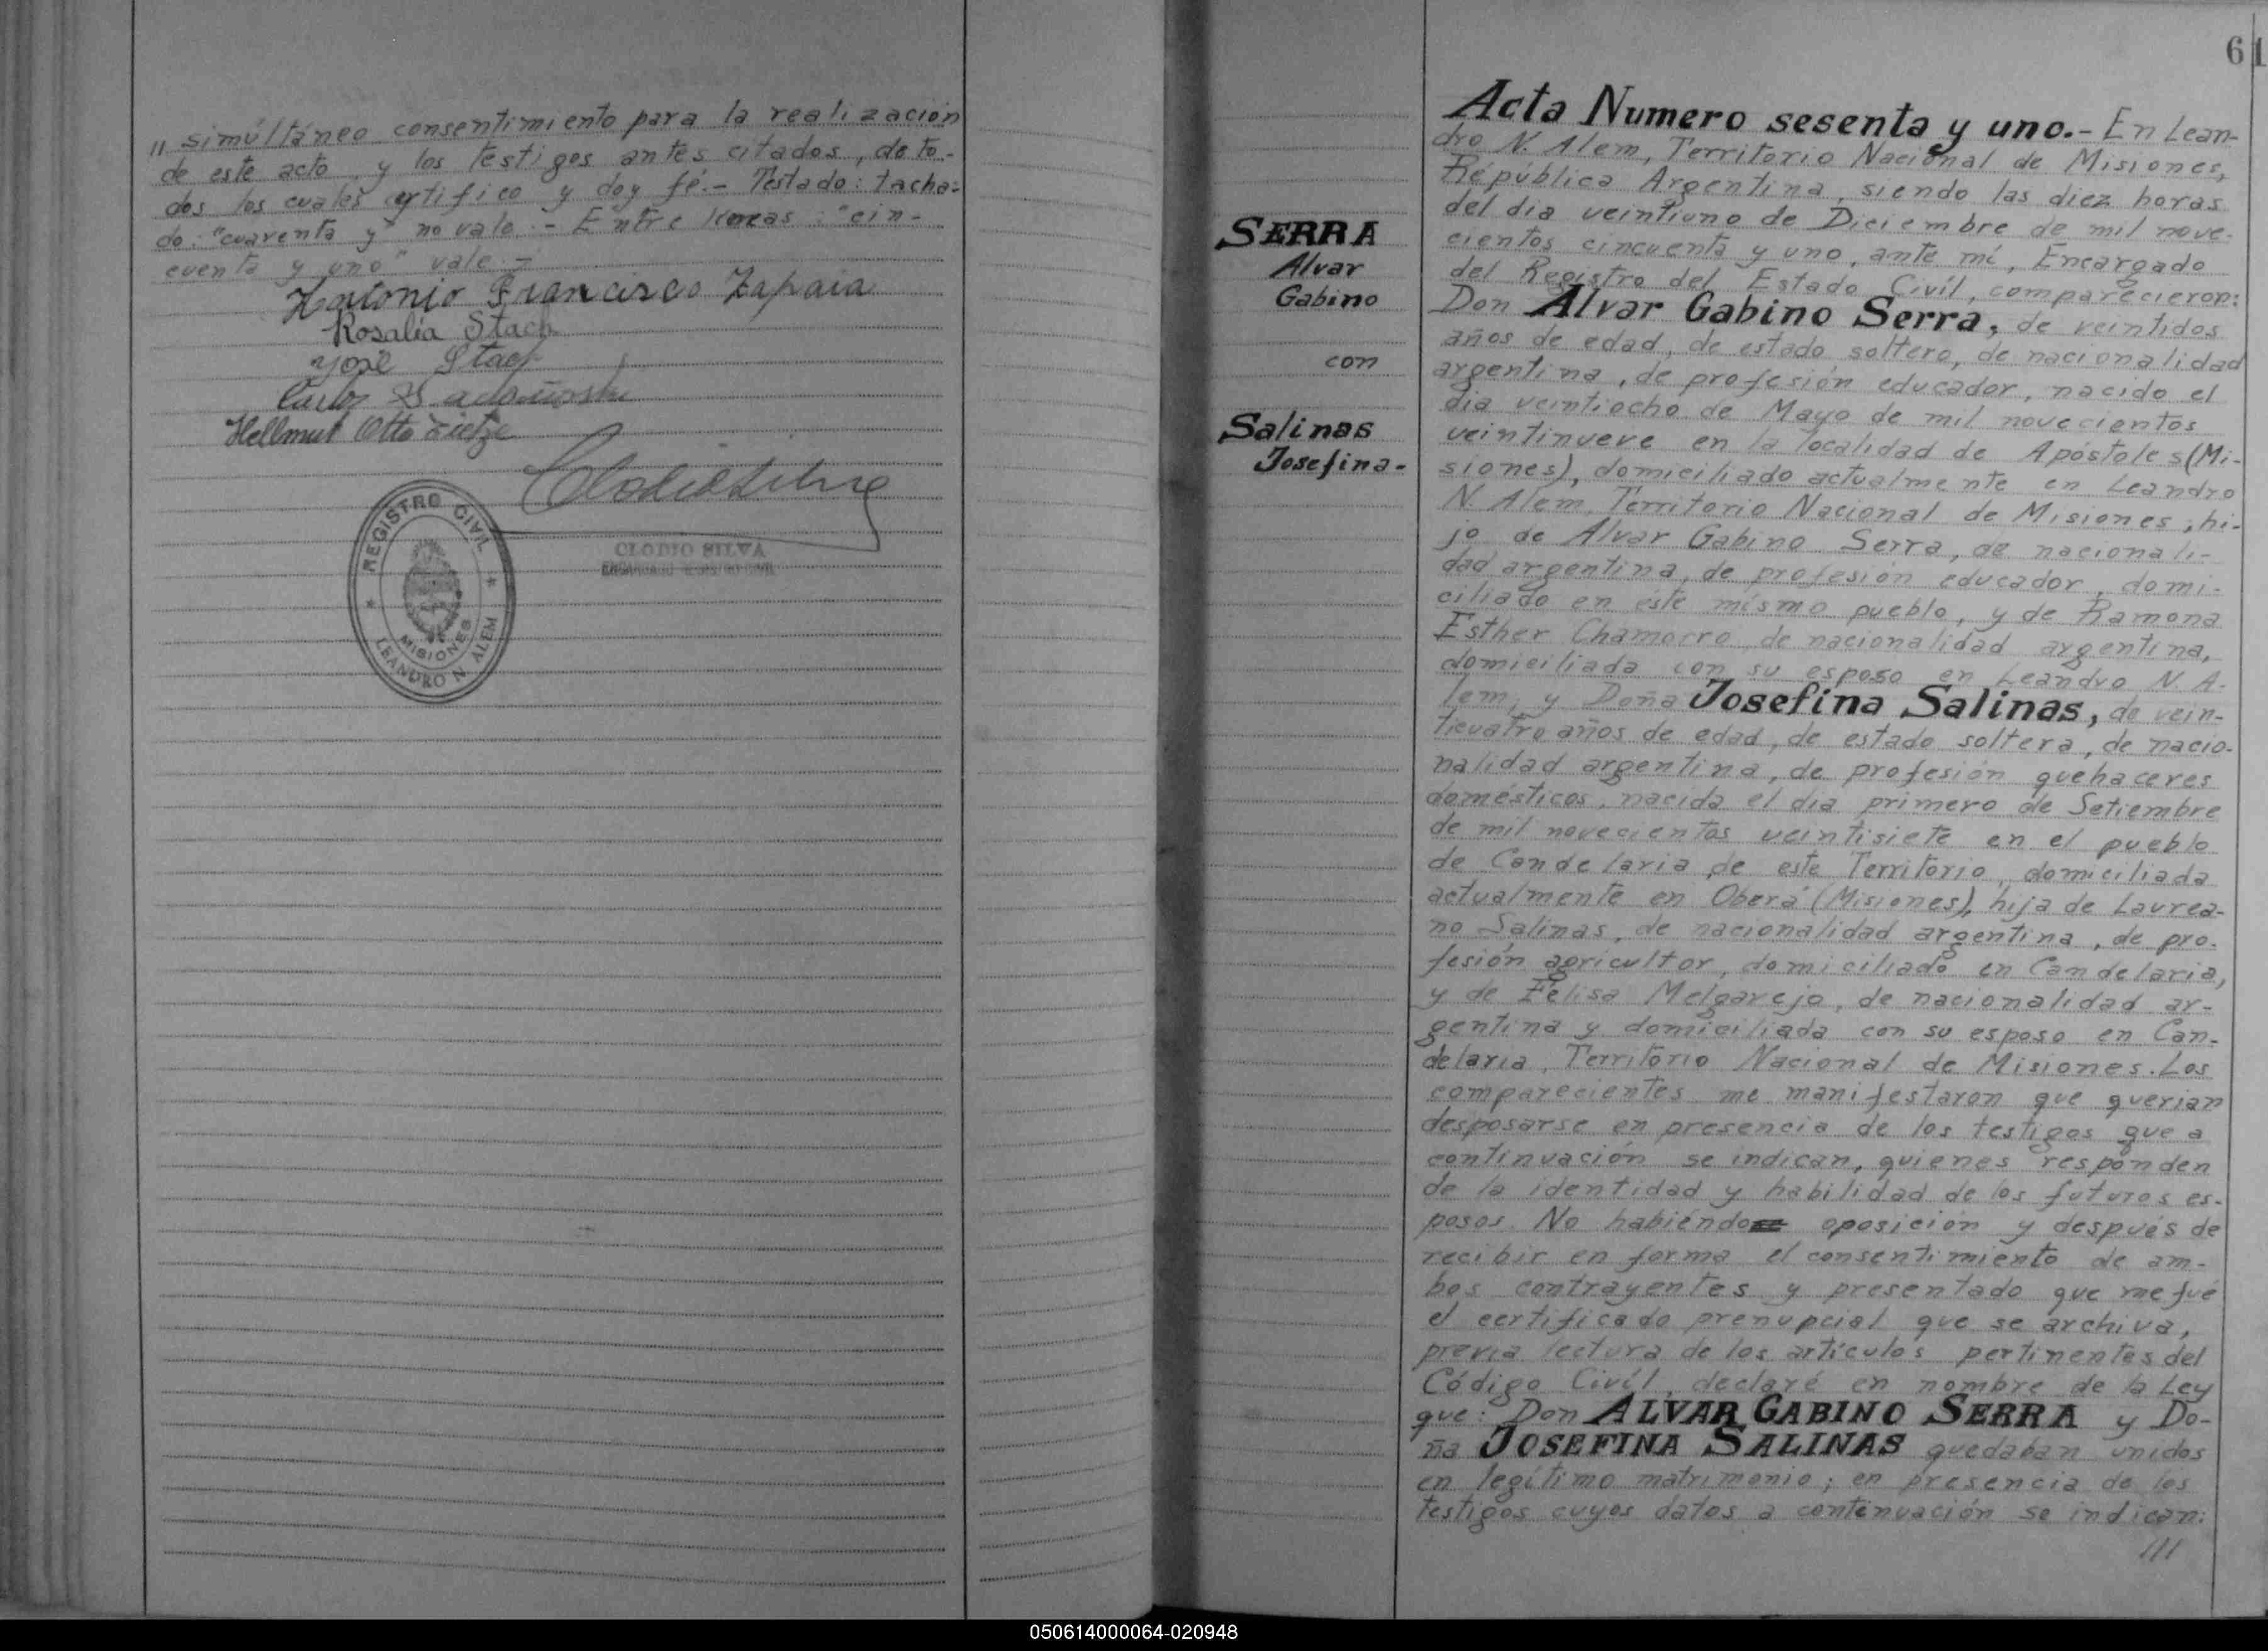 " simúltáneo consentimiento para la realización
de este acto, y los testigos antes citados, de to-
dos los cuales certifico y doy fé.- Testado: tacha-
do: "cuarenta y" no vale.- Entre lineas: "cin-
cuenta y uno" vale.-
Antonio Francisco Zapaia
Rosalia Stach
José Stach
Carlos
Hellmut Otto
REGISTRO CIVIL
MISIONES
LEANDRO N. ALEM
CLODIO SILVA
ENCARGADO REGISTRO CIVIL
61
SERRA
Alvar
Gabino
con
Salinas
Josefina-
Acta Numero sesenta y uno.- En Lean-
dro N. Alem, Territorio Nacional de Misiones,
República Argentina, siendo las diez horas
del dia veintiuno de Diciembre de mil nove-
cientos cincuenta y uno, ante mí, Encargado
del Registro del Estado Civíl, comparecieron:
Don Alvar Gabino Serra, de veintidos
años de edad, de estado soltero, de nacionalidad
argentina, de profesión educador, nacido el
dia veintiocho de Mayo de mil novecientos
veintinueve en la localidad de Apóstoles (Mi-
siones), domiciliado actualmente en Leandro
N. Alem, Territorio Nacional de Misiones, hi-
jo de Alvar Gabino Serra, de nacionali-
dad argentina, de profesión educador, domi-
ciliado en éste mísmo pueblo, y de Ramona
Esther Chamorro, de nacionalidad argentina,
domiciliada con su esposo en Leandro N. A-
lem, y Doña Josefina Salinas, de vein-
ticuatro años de edad, de estado soltera, de nacio-
nalidad argentina, de profesión quehaceres
domésticos, nacida el dia primero de Setiembre
de mil novecientos veintisiete en el pueblo
de Candelaria, de este Territorio, domiciliada
actualmente en Oberá (Misiones), hija de Laurea-
no Salinas, de nacionalidad argentina, de pro-
fesión agricultor, domiciliado en Candelaria,
y de Felisa Melgarejo, de nacionalidad ar-
gentina y domiciliada con su esposo en Can-
delaria, Territorio Nacional de Misiones. Los
comparecientes me manifestaron que querian
desposarse en presencia de los testigos que a
continuación se indican, quienes responden
de la identidad y habilidad de los futuros es-
posos. No habiéndo oposición y después de
recibir en forma el consentimiento de am-
bos contrayentes y presentado que me fué
el certificado prenupcial que se archiva,
previa lectura de los artículos pertinentes del
Código Civíl, declaré en nombre de la Ley
que: Don ALVAR GABINO SERRA y Do-
ña JOSEFINA SALINAS quedaban unidos
en legítimo matrimonio; en presencia de los
testigos cuyos datos a continuación se indican:
///
050614000064-020948